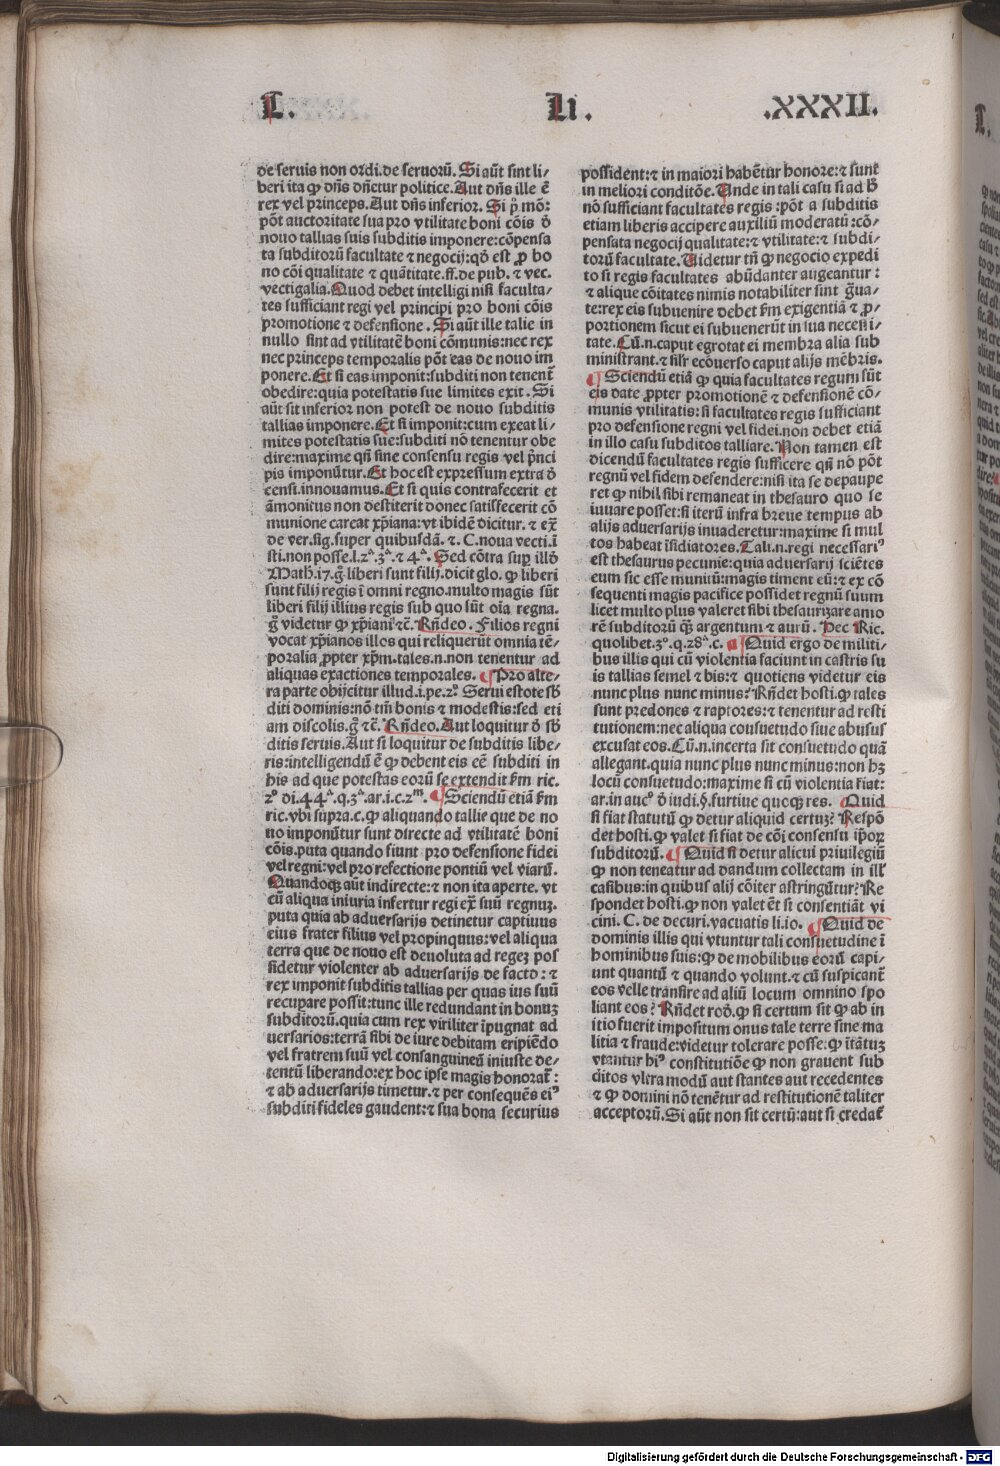 L. Li. .XXXII.
de seruis non ordi.de seruorū. Si aūt sint li⸗
beri ita ꝙ dñs dñetur politice. Aut dñs ille ē
rex vel princeps. Aut dñs inferior. Si pͥ mō:
pōt auctoritate sua pro vtilitate boni cōis ð
nouo tallias suis subditis imponere:cōpensa
ta subditorū facultate ⁊ negocij:qð est ꝓ bo
no cōi qualitate ⁊ quātitate.ff.de pub. ⁊ vec.
vectigalia. Quod debet intelligi nisi faculta⸗
tes sufficiant regi vel principi pro boni cōis
promotione ⁊ defensione. Si aūt ille talie in
nullo sint ad vtilitatē boni cōmunis:nec rex
nec princeps temporalis pōt eas de nouo im
ponere. Et si eas imponit:subditi non tenent̄
obedire:quia potestatis sue limites exit. Si
aūt sit inferior non potest de nouo subditis
tallias imponere. Et si imponit:cum exeat li⸗
mites potestatis sue:subditi nō tenentur obe
dire:maxime qn̄ sine consensu regis vel p̄nci
pis imponūtur. Et hoc est expressum extra ð
censi.innouamus. Et si quis contrafecerit et
āmonitus non destiterit donec satisfecerit cō
munione careat xp̄iana:vt ibidē dicitur. ⁊ ex̄
de ver.sig.super quibusdā. ⁊. C.noua vecti.ī
sti.non posse.l.2ª.3ª.⁊ 4ª. Sed cōtra suꝑ illð
Math.17.g̊ liberi sunt filij.dicit glo. ꝙ liberi
sunt filij regis ī omni regno.multo magis sūt
liberi filij illius regis sub quo sūt oīa regna.
g̊ videtur ꝙ xp̄iani ⁊c̄. Rñdeo. Filios regni
vocat xp̄ianos illos qui reliquerūt omnia tē⸗
poralia ꝓpter xp̄m.tales.n.non tenentur ad
aliquas exactiones temporales. ¶ Pro alte⸗
ra parte obijcitur illud.i.pe.2º. Serui estote sb̄
diti dominis:nō tm̄ bonis ⁊ modestis:sed eti
am discolis.g̊ ⁊c̄. Rñdeo. Aut loquitur ð sb̄
ditis seruis. Aut si loquitur de subditis libe⸗
ris:intelligendū ē ꝙ debent eis eē subditi in
his ad que potestas eorū se extendit ẜm ric.
2º di.44ª.q.3ª.ar.i.c.2ᵐ. ¶ Sciendū etiā ẜm
ric.vbi supra.c.ꝙ aliquando tallie que de no
uo imponūtur sunt directe ad vtilitatē boni
cōis.puta quando fiunt pro defensione fidei
vel regni:vel pro refectione pontiū vel viarū.
Quandoqꝫ aūt indirecte:⁊ non ita aperte. vt
cū aliqua iniuria infertur regi ex̄ suū regnuꝫ.
puta quia ab aduersarijs detinetur captiuus
eius frater filius vel propinquus:vel aliqua
terra que de nouo est deuoluta ad regeꝫ pos
sidetur violenter ab aduersarijs de facto: ⁊
rex imponit subditis tallias per quas ius suū
recuꝑare possit:tunc ille redundant in bonuꝫ
subditorū.quia cum rex viriliter īpugnat ad
uersarios:terrā sibi de iure debitam eripiēdo
vel fratrem suū vel consanguineū iniuste de⸗
tentū liberando:ex hoc ipse magis honorat̄:
⁊ ab aduersarijs timetur.⁊ per consequēs ei⁹
subditi fideles gaudent:⁊ sua bona securius
possident:⁊ in maiori habētur honore:⁊ sunt̄
in meliori conditōe. Unde in tali casu si ad b̄
nō sufficiant facultates regis:pōt a subditis
etiam liberis accipere auxiliū moderatū:cō⸗
pensata negocij qualitate:⁊ vtilitate:⁊ subdi⸗
torū facultate. Uidetur tn̄ ꝙ negocio expedi
to si regis facultates abūdanter augeantur:
⁊ alique cōitates nimis notabiliter sint g̊ua⸗
te:rex eis subuenire debet ẜm exigentiā ⁊ ꝓ⸗
portionem sicut ei subuenerūt in sua necessi⸗
tate. Cū.n.caput egrotat ei membra alia sub
ministrant.⁊ siłr ecōuerso caput alijs mēbris.
¶ Sciendū etiā ꝙ quia facultates regum sūt
eis date ꝓpter promotionē ⁊ defensionē cō⸗
munis vtilitatis:si facultates regis sufficiant
pro defensione regni vel fidei.non debet etiā
in illo casu subditos talliare. Non tamen est
dicendū facultates regis sufficere qn̄ nō pōt
regnū vel fidem defendere:nisi ita se depaupe
ret ꝙ nihil sibi remaneat in thesauro quo se
iuuare posset:si iterū infra breue tempus ab
alijs aduersarijs inuaderetur:maxime si mul
tos habeat īsidiatores. Tali.n.regi necessari⁹
est thesaurus pecunie:quia aduersarij sciētes
eum sic esse munitū:magis timent eū:⁊ ex cō
sequenti magis pacifice possidet regnū suum
licet multo plus valeret sibi thesaurizare amo
rē subditorū qꝫ argentum ⁊ aurū. Hec Ric.
quolibet.3º.q.28ª.c. ¶ Quid ergo de militi⸗
bus illis qui cū violentia faciunt in castris su
is tallias semel ⁊ bis:⁊ quotiens videtur eis
nunc plus nunc minus? Rñdet hosti.ꝙ tales
sunt predones ⁊ raptores:⁊ tenentur ad resti
tutionem:nec aliqua cousuetudo siue abusus
excusat eos. Cū.n.incerta sit consuetudo quā
allegant.quia nunc plus nunc minus:non hꝫ
locū consuetudo:maxime si cū violentia fiat:
ar.in auc° ð iudi.§.furtiue quoqꝫ res. Quid
si fiat statutū ꝙ detur aliquid certuꝫ? Respō
det hosti.ꝙ valet si fiat de cōi consensu ip̄oꝝ
subditorū. ¶ Quid si detur alicui priuilegiū
ꝙ non teneatur ad dandum collectam in ill̄
casibus:in quibus alij cōiter astringūtur? Re
spondet hosti.ꝙ non valet ēt si consentiāt vi
cini. C. de decuri.vacuatis li.io. ¶ Quid de
dominis illis qui vtuntur tali consuetudine ī
hominibus suis:ꝙ de mobilibus eorū capi⸗
unt quantū ⁊ quando volunt.⁊ cū suspicant̄
eos velle transire ad aliū locum omnino spo
liant eos? Rñdet roð.ꝙ si certum sit ꝙ ab in
itio fuerit impositum onus tale terre sine ma
litia ⁊ fraude:videtur tolerare posse:ꝙ ītātuꝫ
vtantur hi⁹ constitutiōe ꝙ non grauent sub
ditos vltra modū aut stantes aut recedentes
⁊ ꝙ domini nō tenētur ad restitutionē taliter
acceptorū. Si aūt non sit certū:aut si credat̄
Digitalisierung gefördert durch die Deutsche Forschungsgemeinschaft - DFG